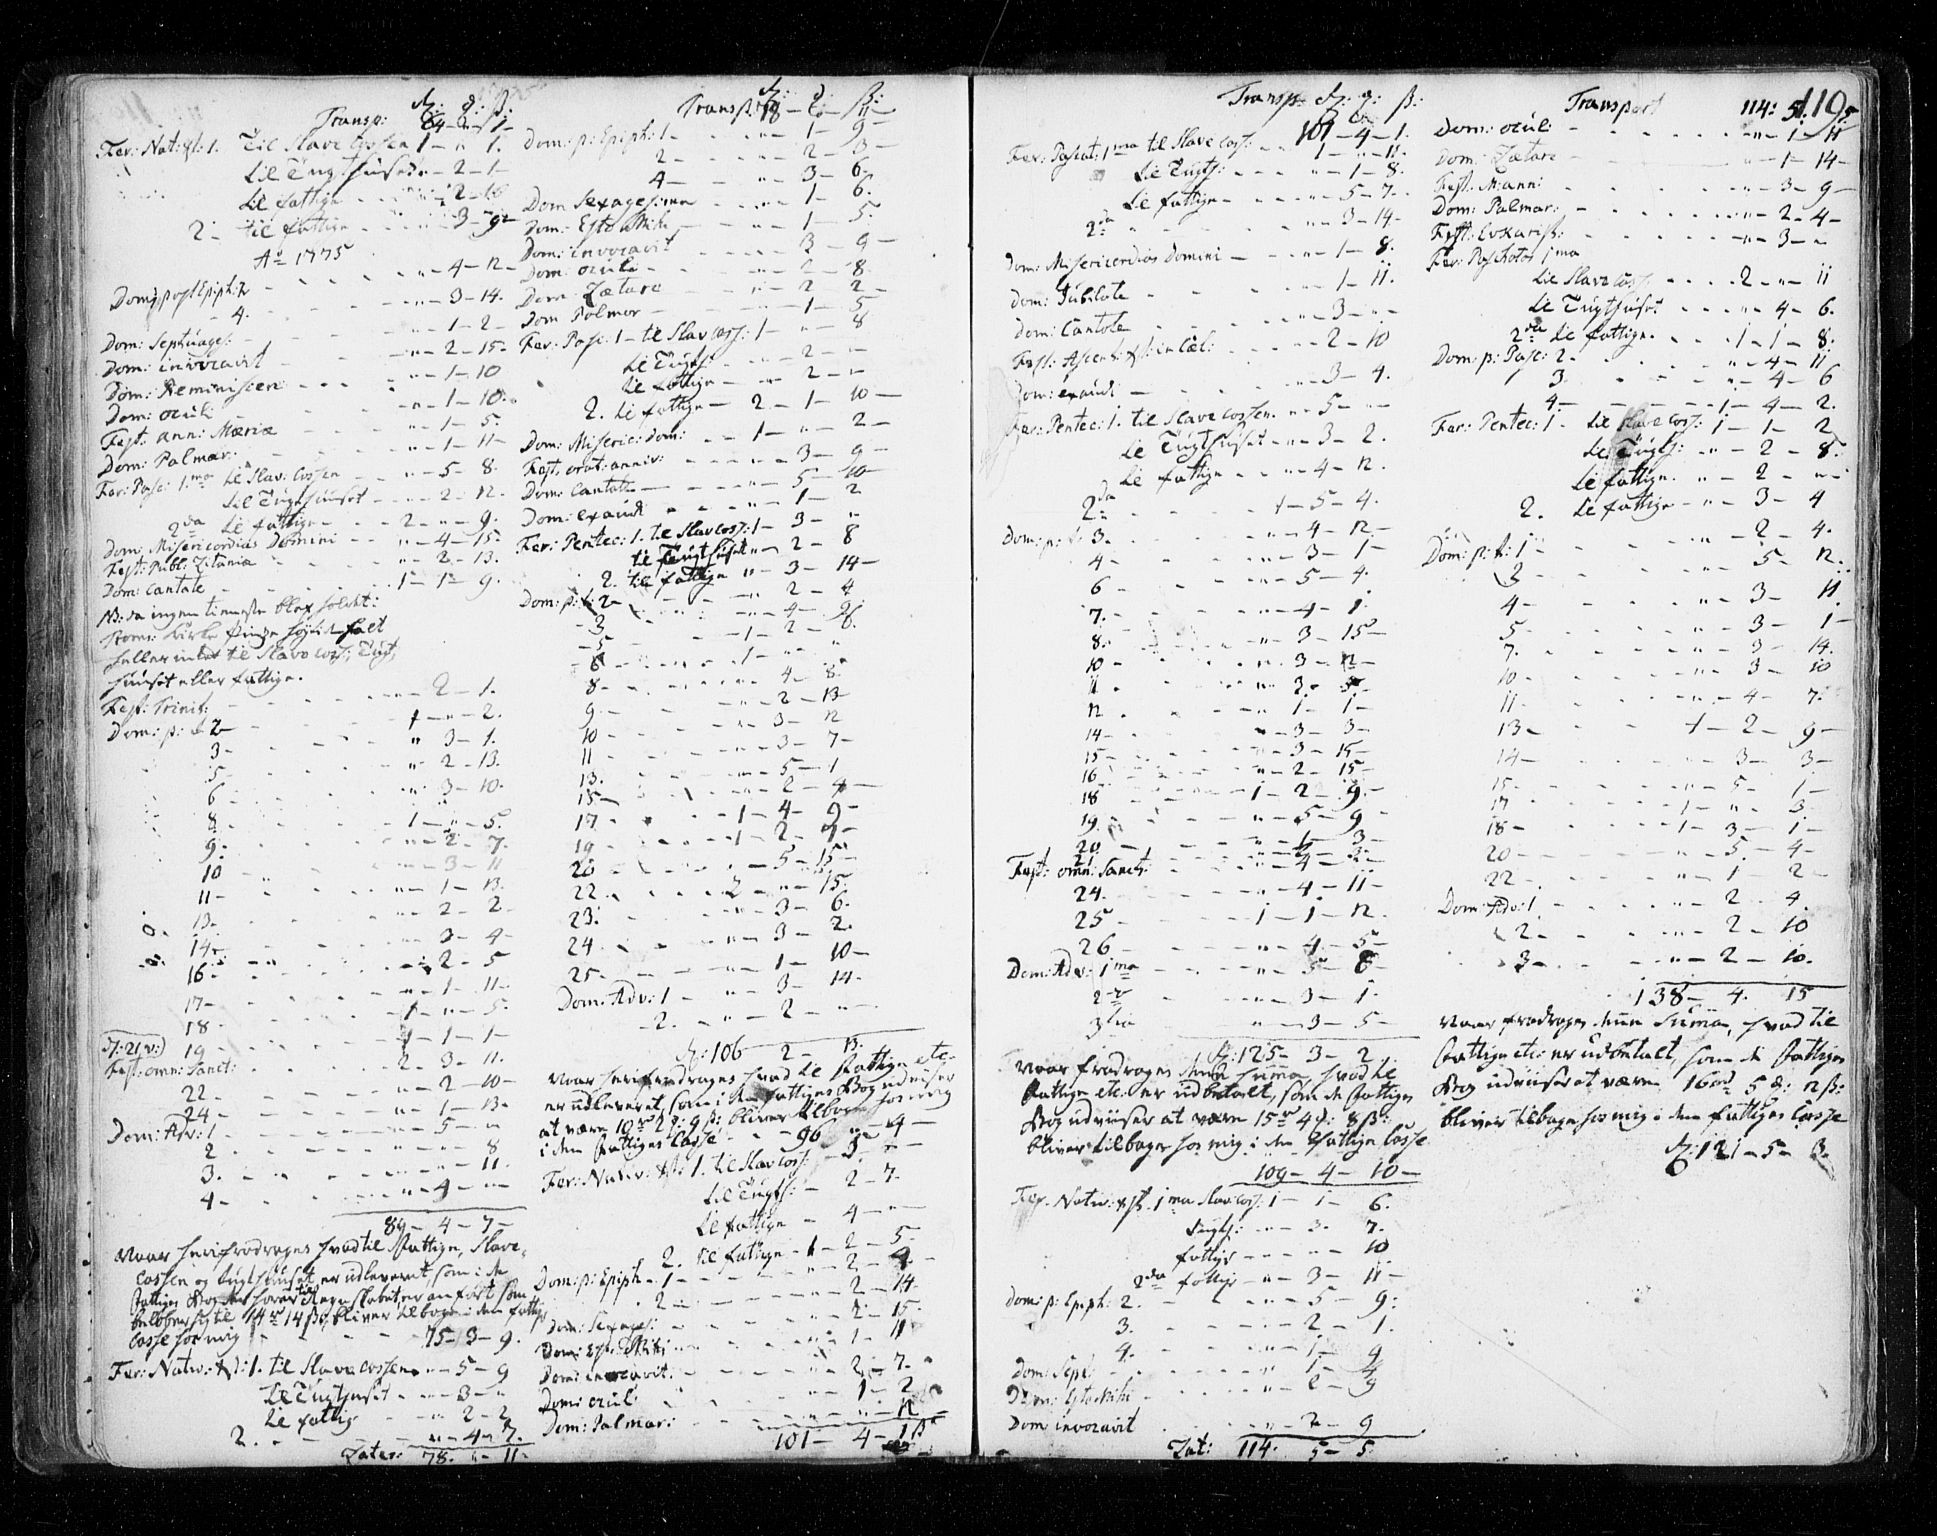 Transp: 64 - 2 - 1 -
Fer: Nat: 1. Til Slave Cossen 1 - " 1.
til Tugthuset " - 2 - 1 -
til fattige " - 2 - 10
2 - til fattige - - " - 3 - 9 -
Ao 1775
Dom: post Epiph: 2 - - " - 4 - 12 -
- 4. - - " - 3 - 14.
Dom: Septuages: - " - 1 - 2 -
Dom: invocavit - " - 2 - 15.
Dom: Reminiscere - - - " - 1 - 10
Dom: oculi - " - 1 - 10.
Fest: ann: Mariæ - " - 1 - 5.
Dom: Palmar: - " - 1 - 11 -
Fer: Pasc: 1.ma til Slav: Cossen " - 5 - 8.
til Tugthuuset - " - 2 - 12.
2da til fattige - - 2 - " - 9.
Dom: Misericordias Domini - " - 4 - 15.
Fest: Publ: Litania - " - 2 - 13.
Dom: Cantate - 1 - 1 - 9.
NB: da ingen tieneste blev holdt
Kirke Pintze
heller intet til Slave Coss; Tugt,
huuset eller fattige.
Fest: Trinit: - " - 2 - 1.
Dom: p: t: 2 - 1 - " - 2.
3 - " 3 - 1.
5 - " 2 - 13.
6 - " 3 - 10.
8 - 1 - " - 5.
9 - " 2 - 7.
10 - " - 3 - 11
11 - " - 1 - 13.
13. - " - 2 - 2.
14 - " - 3 - 4 -
16 - " - 2 - 5
17 - " - 1 - 11 -
18 - 1 - " - 5.
19 - 1 - 1 - 1 -
Fest: omn: Sanct: 2 - 3 - 11.
22 - " - 2 - 10 -
24 - " - 1 - 13.
Dom: Adv: 1 - " - 5 - "
2 - " - " - 8
3. - " - " - 11.
4 - " - 4 - "
89 - 4 - 7 -
Naar herifradrages hvad til Fattige, Slave,
Cossen og Tugthuuset er udleveret, som i de
Fattiges Bog
14 14 ß, bliver tilbage i den fattig
Casse hos mig - 75 - 3 - 9.
Fer: Nativ: 1. til Slave Cossen " - 5 - 9
til Tugthuset - " - 3 - "
til fattig - " 2 - 2
2. - " - 4 - 7.
Later: 78. " - 11 -
Transp: 78 - " - 11
Dom: p: Epiph: 1 - - - 1 - 9 -
2 - - - " - 2 - 3 -
4 - - " - 3 - 6.
Dom Sexagesima - - " - 1 - 6.
Dom: Esto Mihi - - " - 1 - 5.
Dom: invocavit - " - 3 - 9 -
Dom: oculi - " - 2 - 8.
Dom: Lætare - " - 2 - 2 -
Dom Palmar - " - 1 - 5
Fer: Pasc: 1 - til Slav Coss: 1 - " - 8
til Tugts - " - 2 - "
til fattige - " - 2 - "
2. til fattige - 2 - 1 - 10 -
Dom: Miseric: Dom: - - 1 - " - 2 -
Fest: orat: anniv: - " - 3 - 9 -
Dom: Cantate - " - 5 - 10 -
Dom: exaudi - " - 1 - 2
Fer: Pentec: 1. til Slav Coss: 1 - 3 - "
til Tugthuset " - 2 - 8
2. til fattige " - 3 - 14 -
Dom: p: t: 2 - " - 2 - 4
3 - " - 4 - 9.
5 - 1 - 2 - 8.
6 - 1 - " - "
8 - " - 4 - 8.
9. - " - 2 - 13
10 - " - 3 - 12
11 - " - 3 - 7 -
13. - " - 5 - 1
15 - " - 2 - 4 -
17 - 1 - 4 - 9 -
19 - 1 - 2 - 9 -
20 - " - 5 - 15
22 - 2 - " - 15.
23. - " - 3 - 6.
24 - " - 3 - 2.
25 - " - 1 - 10 -
Dom: Adv: 1 - " - 3 - 14.
- 2. - " - 2 - "
106 - 2 - 13.
Naar herifradrages hvad til Fattige etc.
er udleveret, som i den fattiges Bog udviser
at være 10 2 9 ß: bliver tilbage hos mig
i den Fattiges Casse - - 96 " - 4 -
Fer: Nativ: 1. til Slav Coss: - 3 - "
til Tugts: - 2 - 7.
til fattige - 4 - "
2. til fattige - 1 - 2 - 5.
Dom: p: Epiph - 1 - 2 - 4 -
2 - 2 - 14.
Dom: Sexages: - 2 - 15.
Dom: Est: Mihi - 1 - 11
Dom: invocavit. - 2 - 7.
Dom: oculi - " - 1 - 2
Dom: Palmar: - " - 12
101 - 4 - 1 ß
Transp: 101 - 4 - 1.
Fer: Pascat: 1ma til Slave Coss: - - 1 - " - 11.
til Tugts: - - - " - 1 - 8.
til fattige - - - " - 5 - 7 -
2da - " - 3 - 14 -
Dom: Misericordias Domini - - - " - 1 - 8.
Dom: Jubilate - " - 1 - 11.
Dom: Cantate - " - 3 - "
Fest: Ascens: in Cæl: - " - 2 - 10
Dom: exaudi - " - 3 - 4.
Fer: Pentec: 1. til Slave Cossen. " - 5 - "
til Tugthuset - " - 3 - 2.
til fattige - " - 4 - 12.
2da - 1 - 5 - 4.
Dom: p: t: 3. - " - 4 - 12 -
4 - " - 3 - 1 -
6 - " - 5 - 4.
7. - " - 4 - 1.
8. - " - 3 - 15 -
10 - " - 3 - 12 -
11. - " - 3 - 5 -
12. - " - 1 - 1 -
14 - " - 3 - 3 -
15 - " - 3 - 15 -
16 - " - 2 - 15 -
18 - 1 - 2 - 9 -
19. - " - 5 - 9 -
20 - " - 1 - 3 -
21
Fest: omn: Sanct: - " - 4 - 2 -
24. - " - 4 - 11 -
25 - 1 - 1 - 12.
26 - " - 4 - 5 -
Dom: Adv: 1ma - " - 5 - 8 -
2 - " - 3 - 1.
3tia - " - 3 - 5 -
125 - 3 - 2.
Naar fradrages denne Summa, hvad til
Fattige etc: er udbetalt, som de Fattiges
Bog udviiser at være 15 4 8 ß:
bliver tilbage hos mig i den Fattige Casse
109 - 4 - 10 -
Fer: Nativ: 1ma Slav Coss: 1 - 1 - 6.
Tugts: - " - 3 - 7.
fattige - - " - " - 10
2da fattige - " - 3 - 11 -
Dom: p: Epiph: 2. - " - 5 - 9.
3. - " - 2 - 1.
4. - " - 1 - 9
Dom: Sept: - " - 1 - 4
Dom: Esto Mihi - " - 2 - 9
Dom invocavit - " - 2 - 9
Lat: 114. 5 - 5.
119.
Transport 114: 5. 5
Dom: oculi - " - 1 - 11
Dom: Lætare - " - 1 - 14 -
Fest: M: ann: - " - 3 - 9 -
Dom: Palmar: - " - 2 - 4 -
Fest: - " - 3 - "
Fer: Paschatos 1ma
til Slave Coss: - - 2 - " - 11
til Tugthuset - " - 4 - 6.
2da til fattige - - - 1 - 1 - 8.
Dom: p: Pasc: 2 - " - 4 - 11
3 - " - 4 - 6
4. - 1 - 4 - 2.
Fer: Pentec: 1 - til Slave Coss: 1 - 1 - 2
til Tugts: " - 2 - 8.
til fattige. " - 2 - "
2. til fattige - " - 3 - 4
Dom: p: t: 1 - " - 2 - 4.
3 - 5 - 12.
4 - " - 3 - 11.
5 - " - 3 - 1 -
7. - " - 3 - 14.
10 - " - 3 - 10
11 - " - 4 - 7.
13 - 1 - 2 - 9 -
14 - " - 3 - 3 -
15 - " - 5 - 1 -
17 - 1 - " - 3.
18 - 1 - 3 - 1 -
20 - " - 5 - 4 -
22 - " - 1 - 2 -
Dom: Adv: 1 - " - 2 - 4.
2 - " - 2 - 10
3 - " - 2 - 10.
138 - 4. 15
Naar fradrages denne Summa, hvad til
Fattige etc: er udbetalt, som de Fattiges
Bog udviiser at være 16 5 12 ß:
bliver tilbage hos mig i den fattiges Casse
121 - 5 - 3.